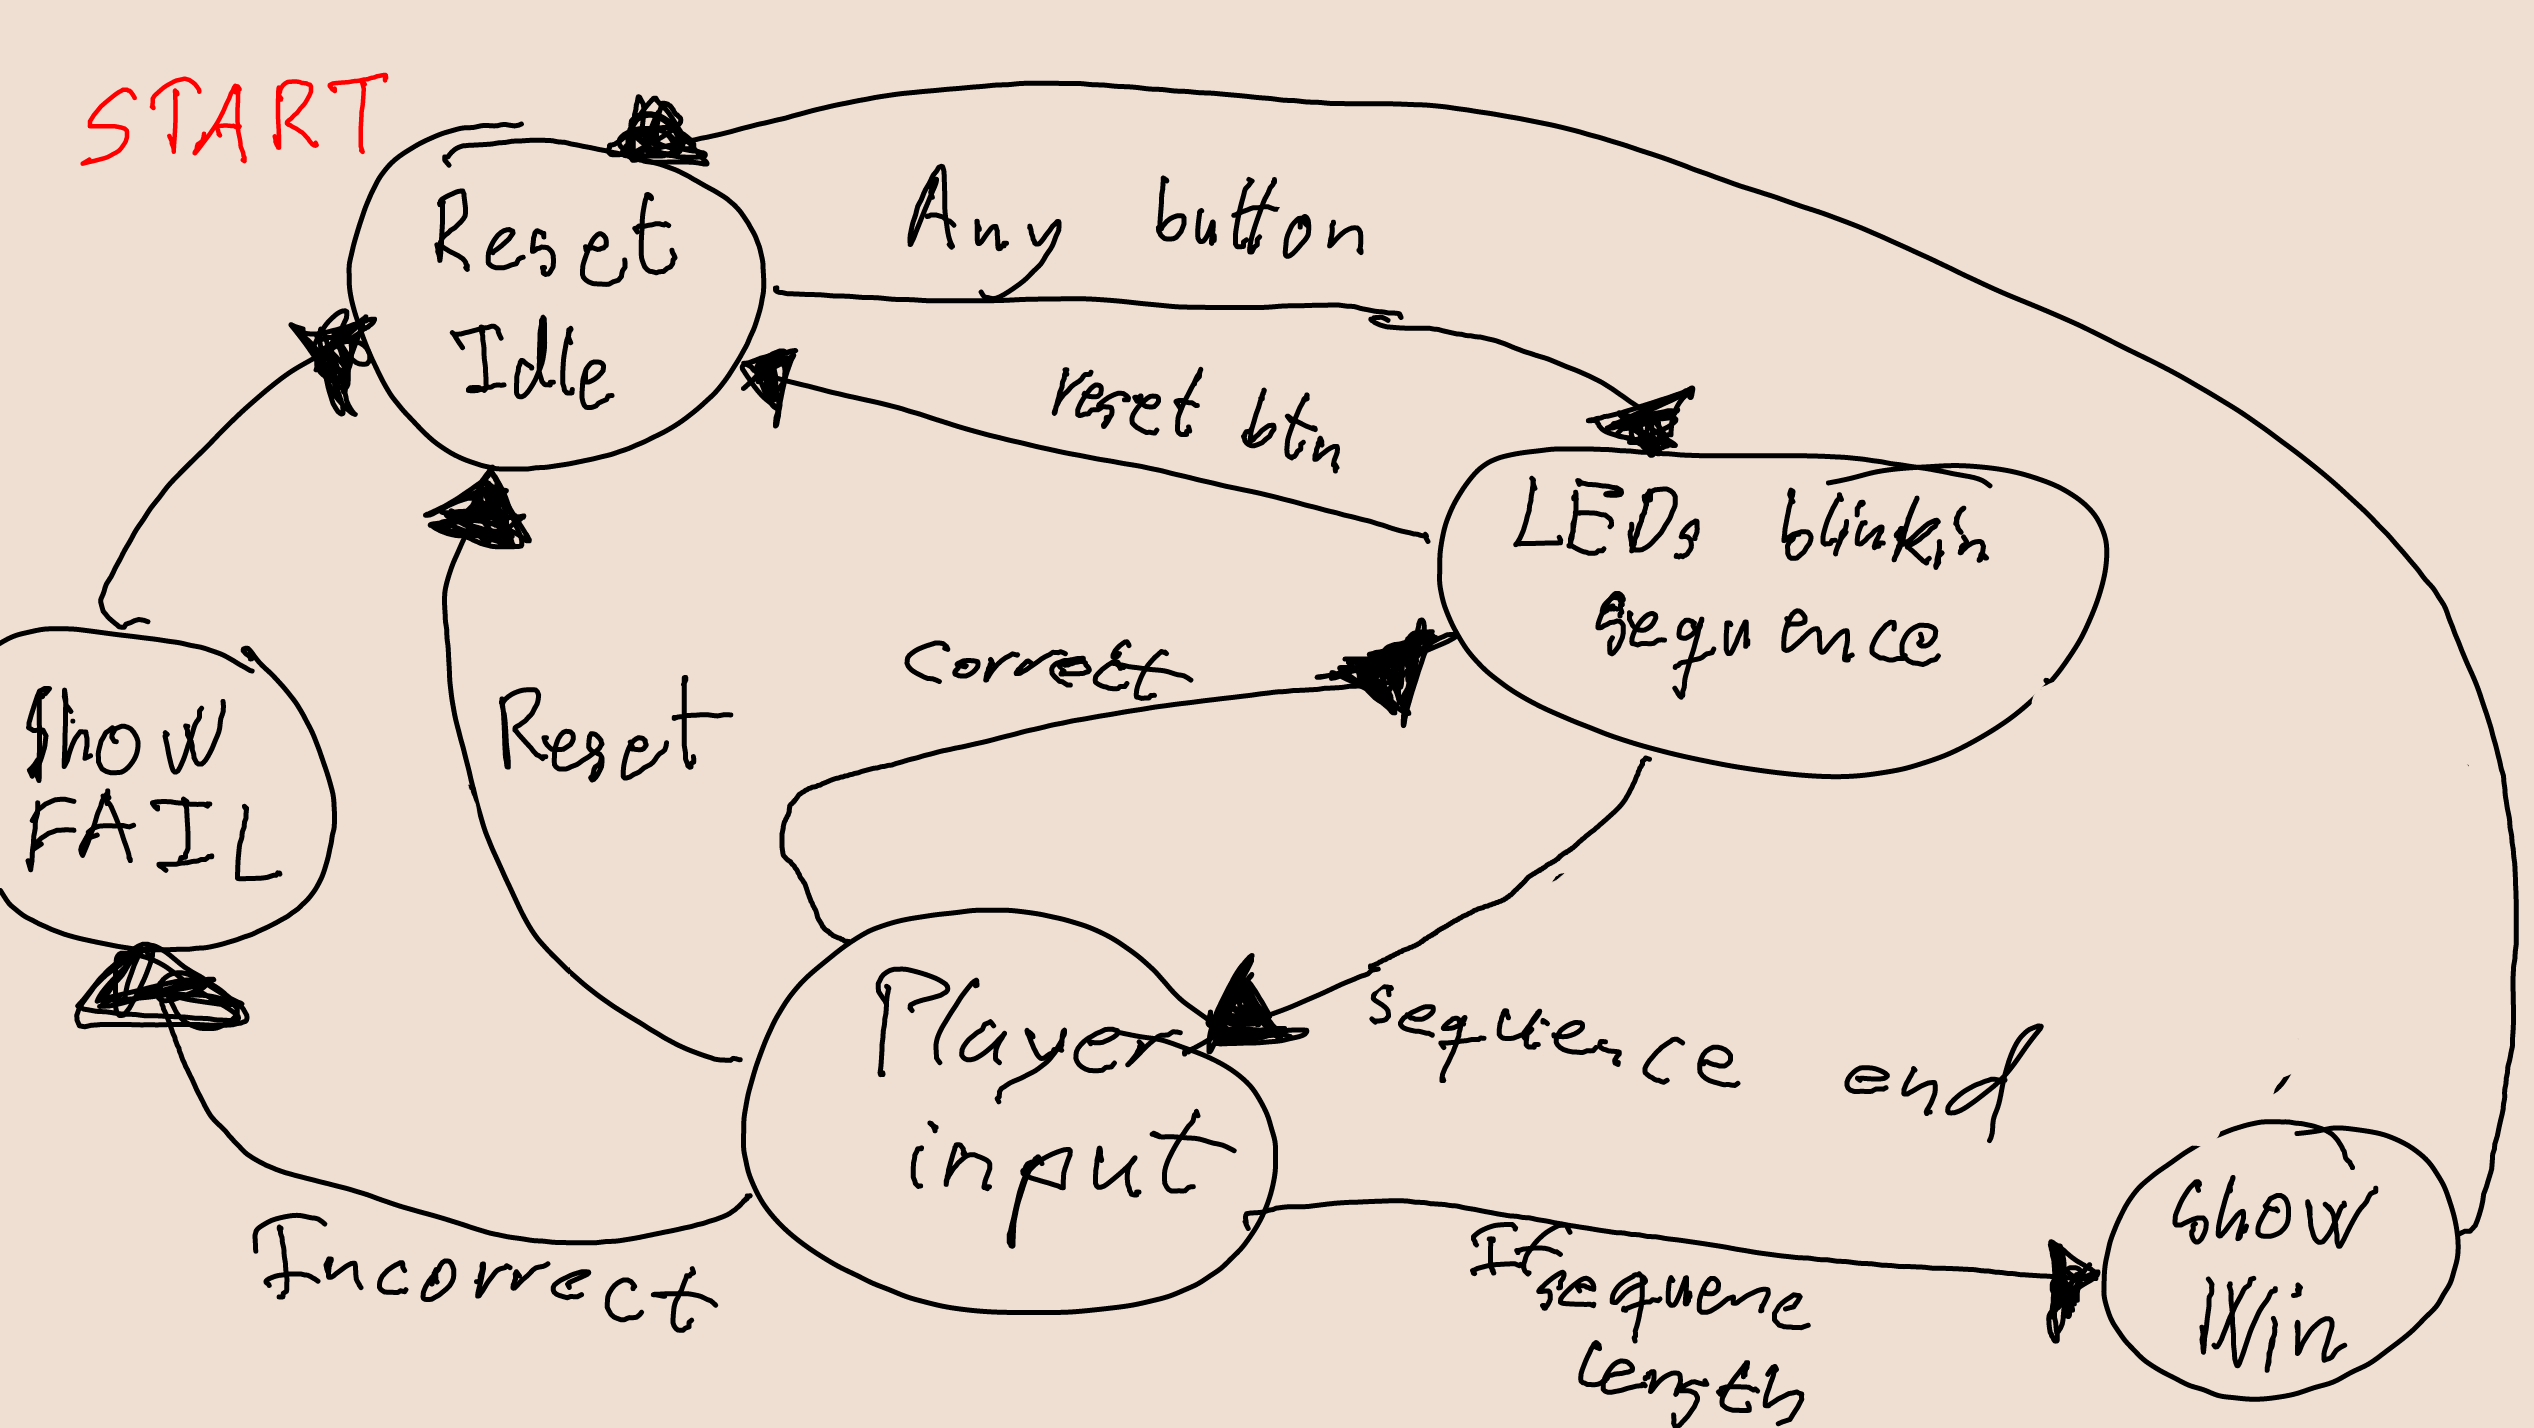 START
Reset
Idle
Any button
reset btn
LEDs blinkin
sequence
correct
Reset
Show
FAIL
Player
input
sequence end
Incorrect
If
sequene
length
Show
Win